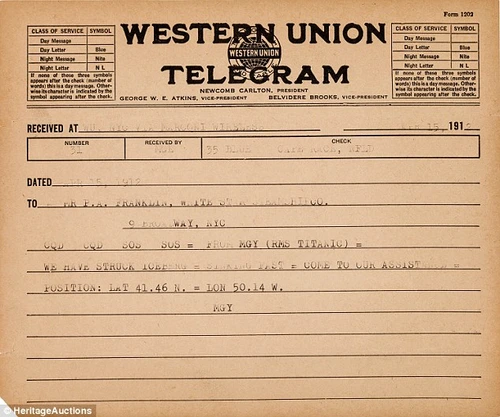 Form 1202
CLASS OF SERVICE SYMBOL
Day Message
Day Letter Blue
Night Message Nite
Night Letter N L
If none of these three symbols appears after the check (number of words) this is a day message. Otherwise its character is indicated by the symbol appearing after the check.
WESTERN UNION
WESTERN UNION
TELEGRAM
NEWCOMB CARLTON, PRESIDENT
GEORGE W. E. ATKINS, VICE-PRESIDENT BELVIDERE BROOKS, VICE-PRESIDENT
CLASS OF SERVICE SYMBOL
Day Message
Day Letter Blue
Night Message Nite
Night Letter N L
If none of these three symbols appears after the check (number of words) this is a day message. Otherwise its character is indicated by the symbol appearing after the check.
RECEIVED AT WIRELESS 15, 1912
NUMBER RECEIVED BY
31 35 CAPE RACE, NFLD
DATED APR 15, 1912
TO MR P.A. FRANKLIN, WHITE STAR STEAMSHIP CO.
9 BROADWAY, NYC
CQD CQD SOS SOS = FROM MGY (RMS TITANIC) =
WE HAVE STRUCK ICEBERG = SINKING FAST = COME TO OUR ASSISTANCE =
POSITION: LAT 41.46 N. = LON 50.14 W.
MGY
© HeritageAuctions